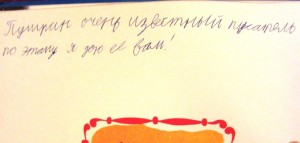 Пушкин очень известный писатель
по этому я дою ее вам!